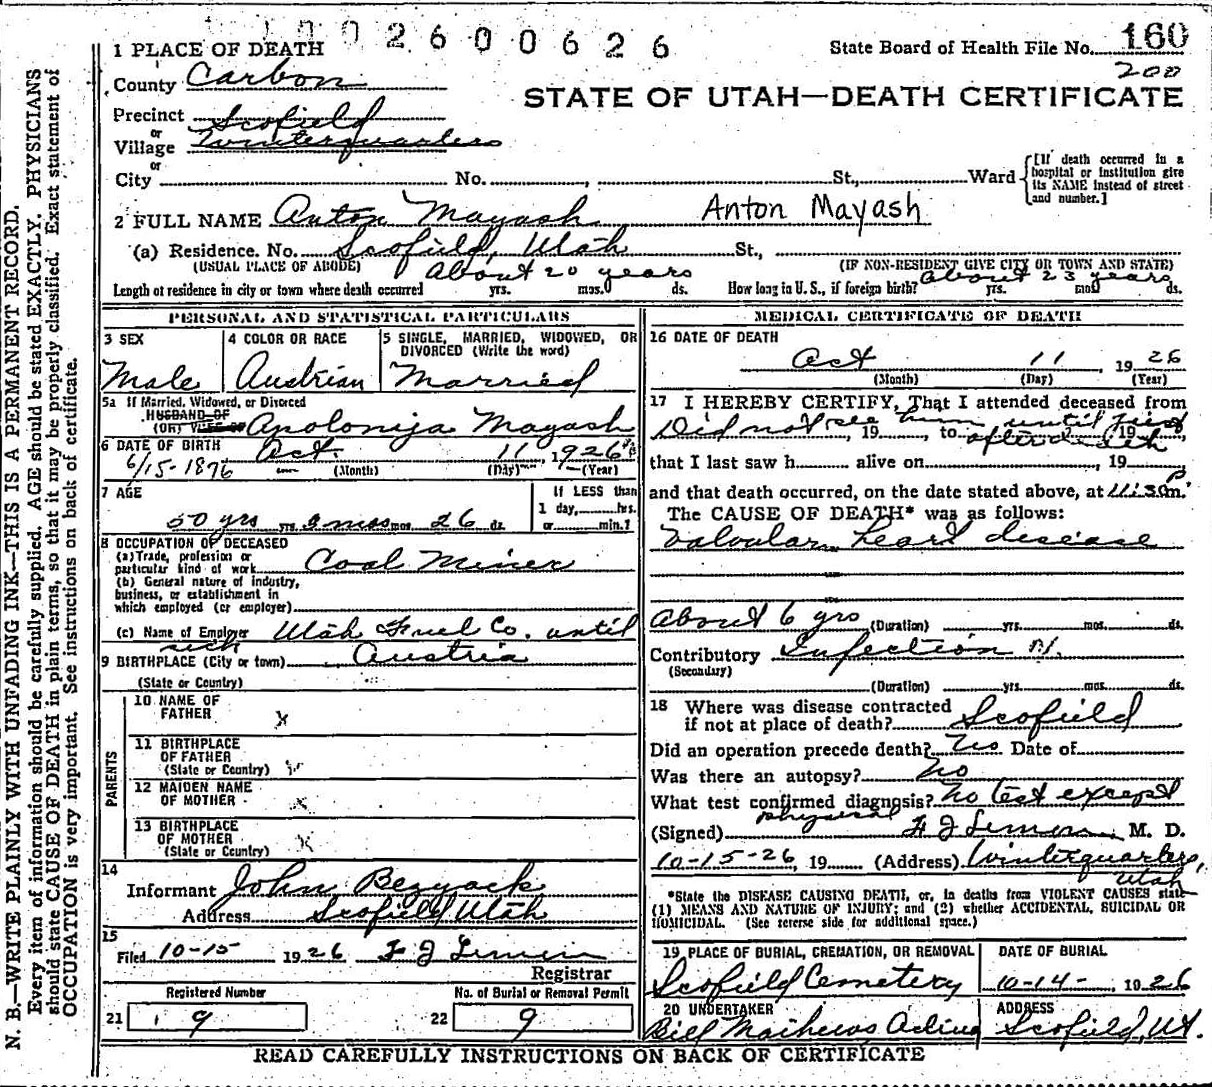 1002600626
1 PLACE OF DEATH
State Board of Health File No. 160
200
County Carbon
STATE OF UTAH—DEATH CERTIFICATE
Precinct Scofield
or
Village Winterquarters
or
City No. , St., Ward
[If death occurred in a hospital or institution give its NAME instead of street and number.]
2 FULL NAME Anton Mayash Anton Mayash
(a) Residence. No. Scofield, Utah St.,
(USUAL PLACE OF ABODE) (IF NON-RESIDENT GIVE CITY OR TOWN AND STATE)
Length of residence in city or town where death occurred About 20 years yrs. mos. ds. How long in U.S., if foreign birth? about 23 years yrs. mos. ds.
PERSONAL AND STATISTICAL PARTICULARS
3 SEX
Male
4 COLOR OR RACE
Austrian
5 SINGLE, MARRIED, WIDOWED, OR DIVORCED (Write the word)
Married
5a If Married, Widowed, or Divorced
HUSBAND OF
(OR) WIFE OF Apolonija Mayash
6 DATE OF BIRTH Oct. 11, 1926
6/15-1876 (Month) (Day) (Year)
7 AGE
50 yrs yrs. 3 mos mos. 26 ds.
If LESS than
1 day, hrs.
or min.?
8 OCCUPATION OF DECEASED
(a) Trade, profession or
particular kind of work Coal Miner
(b) General nature of industry,
business, or establishment in
which employed (or employer)
(c) Name of Employer Utah Fuel Co. until
sick
9 BIRTHPLACE (City or town) Austria
(State or Country)
PARENTS
10 NAME OF
FATHER x
11 BIRTHPLACE
OF FATHER
(State or Country) x
12 MAIDEN NAME
OF MOTHER x
13 BIRTHPLACE
OF MOTHER x
(State or Country)
14
Informant John Bezyack
Address Scofield Utah
15
Filed 10-15 1926 F J Limon
Registrar
Registered Number
21 9
No. of Burial or Removal Permit
22 9
MEDICAL CERTIFICATE OF DEATH
16 DATE OF DEATH
Oct 11, 1926
(Month) (Day) (Year)
17 I HEREBY CERTIFY, That I attended deceased from
Did not see him until just , 19 , to after death , 19 ,
that I last saw h alive on , 19
and that death occurred, on the date stated above, at 11:30 P m.
The CAUSE OF DEATH* was as follows:
Valvular heart disease
About 6 yrs (Duration) yrs. mos. ds.
Contributory Infection
(Secondary)
(Duration) yrs. mos. ds.
18 Where was disease contracted
if not at place of death? Scofield
Did an operation precede death? No Date of
Was there an autopsy? No
What test confirmed diagnosis? No test except
physical
(Signed) F J Limon, M. D.
10-15-26, 19 (Address) Winterquarters,
Utah
*State the DISEASE CAUSING DEATH, or, in deaths from VIOLENT CAUSES state
(1) MEANS AND NATURE OF INJURY; and (2) whether ACCIDENTAL, SUICIDAL OR
HOMICIDAL. (See reverse side for additional space.)
19 PLACE OF BURIAL, CREMATION, OR REMOVAL
Scofield Cemetery
DATE OF BURIAL
10-14- 1926
20 UNDERTAKER
Bill Mathews Acting
ADDRESS
Scofield, Ut.
READ CAREFULLY INSTRUCTIONS ON BACK OF CERTIFICATE
N. B.—WRITE PLAINLY WITH UNFADING INK—THIS IS A PERMANENT RECORD.
Every item of information should be carefully supplied. AGE should be stated EXACTLY. PHYSICIANS
should state CAUSE OF DEATH in plain terms, so that it may be properly classified. Exact statement of
OCCUPATION is very important. See instructions on back of certificate.